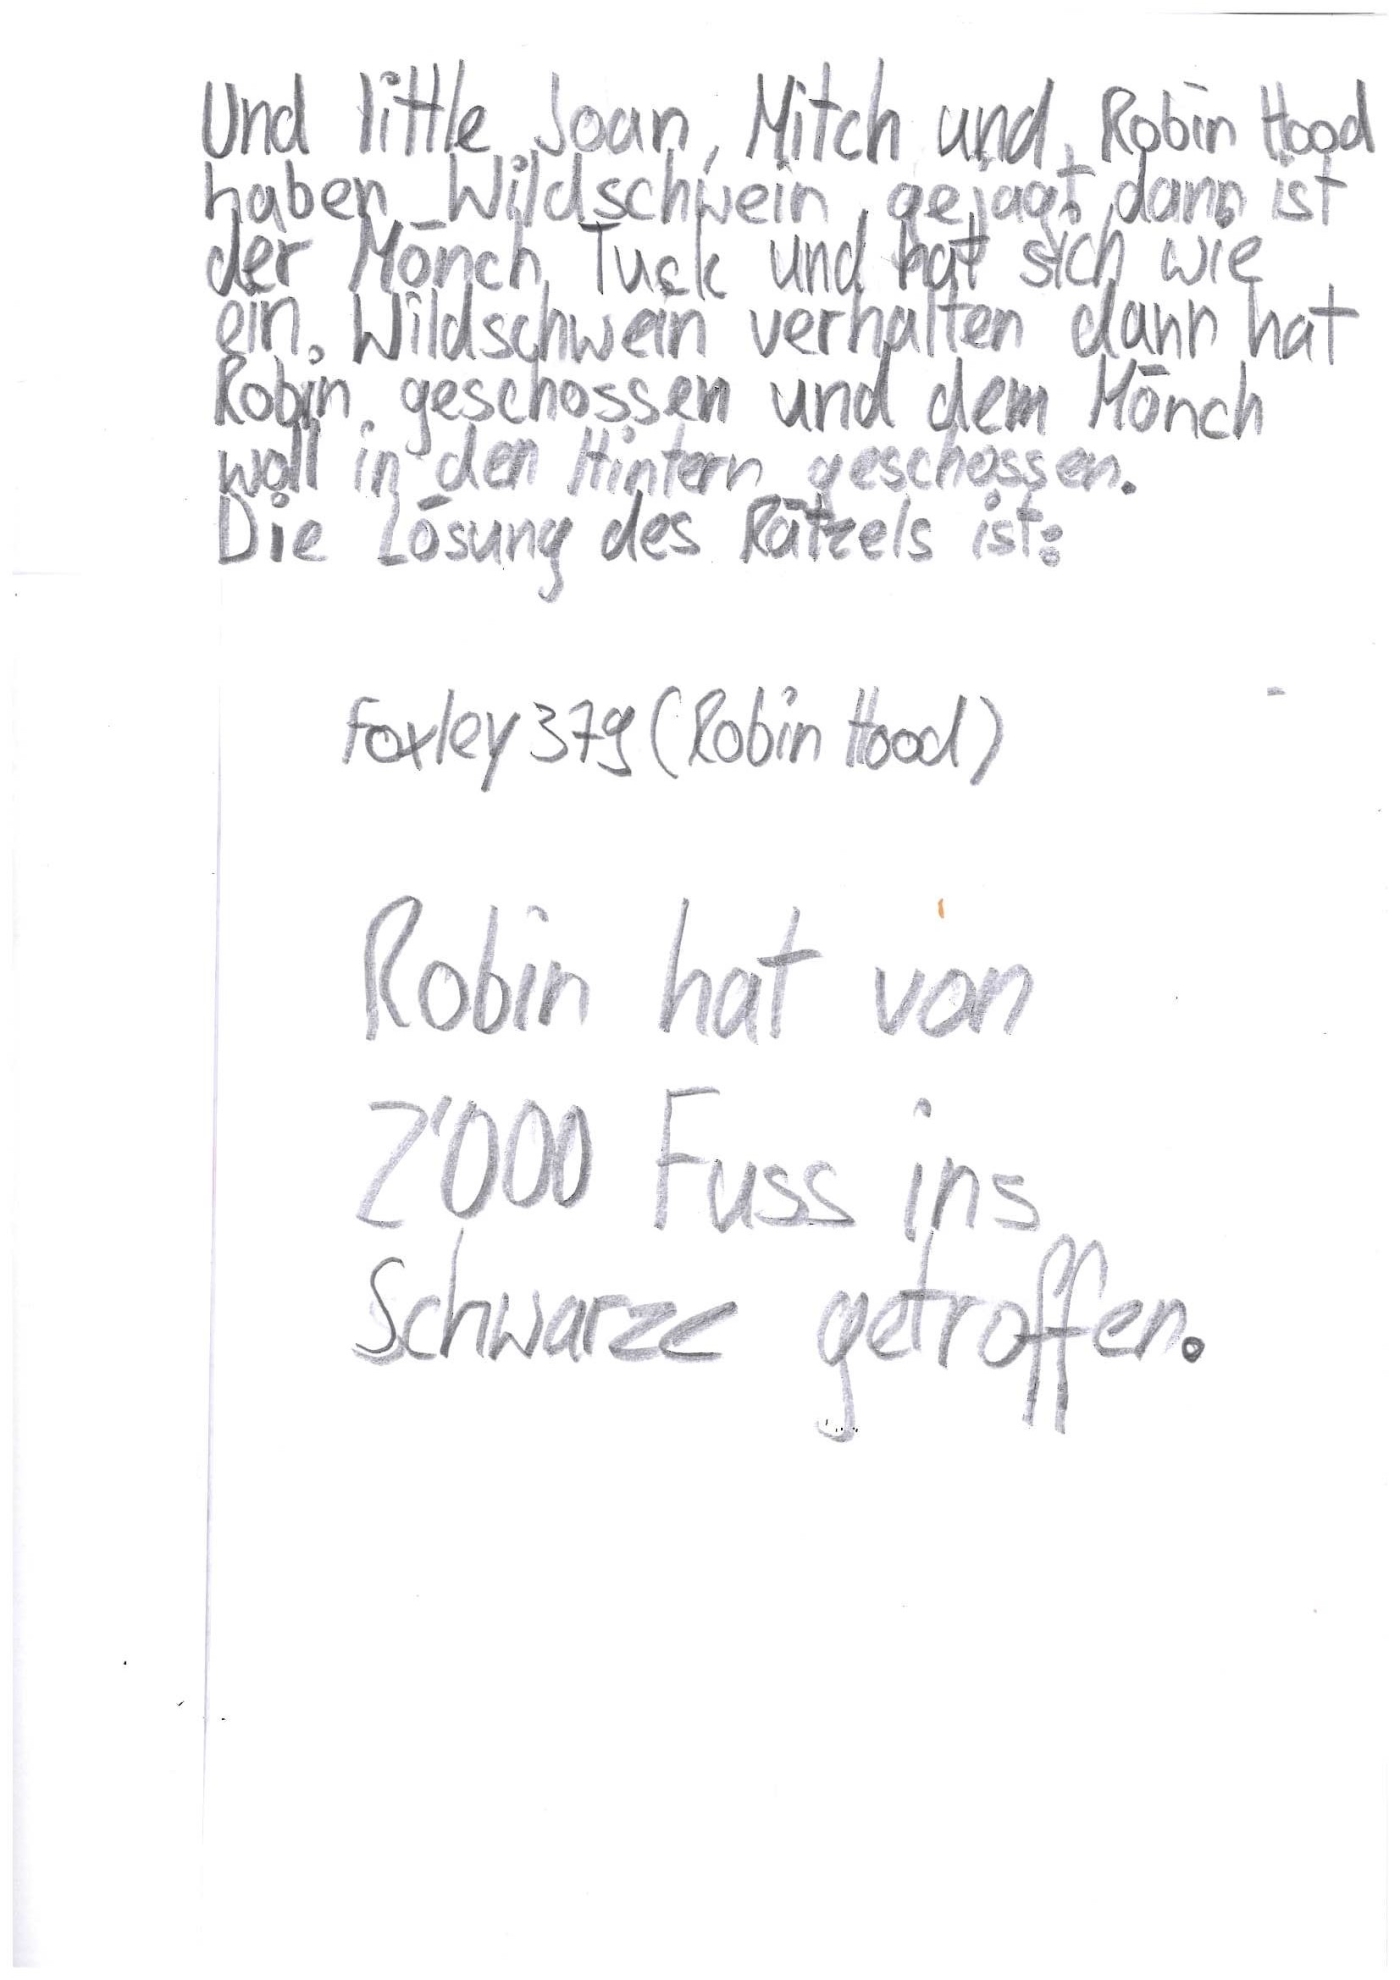 Und little Joan, Mitch und Robin Hood
haben Wildschwein gejagt dann ist
der Mönch Tuck und hat sich wie
ein Wildschwein verhalten dann hat
Robin geschossen und dem Mönch
woll in den Hintern geschossen.
Die Lösung des Rätzels ist:
Foxley 37g (Robin Hood)
Robin hat von
2'000 Fuss ins
Schwarze getroffen.